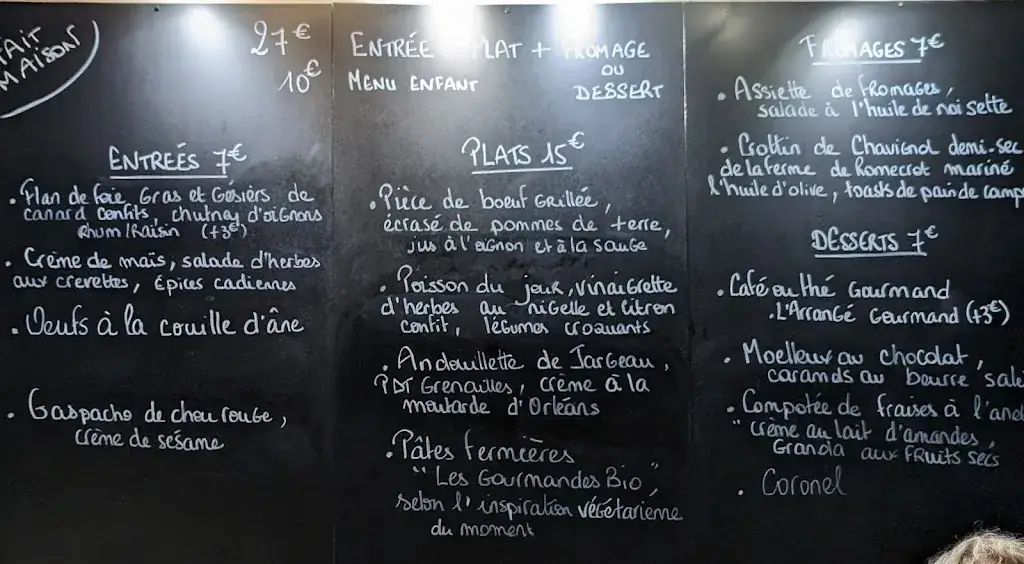 FAIT
MAISON
27€ ENTRÉE + PLAT + FROMAGE
OU
10€ MENU ENFANT DESSERT
ENTREÉS 7€
• Flan de foie Gras et Gésiers de
canard confits, chutney d'oignons
Rhum/Raisin (+3€)
• Crème de maïs, salade d'herbes
aux crevettes, épices cadiennes
• Oeufs à la couille d'âne
• Gaspacho de chou rouge,
crème de sésame
PLATS 15€
• Pièce de boeuf Grillée,
écrasé de pommes de terre,
jus à l'oignon et à la sauge
• Poisson du jour, vinaigrette
d'herbes au nigelle et citron
confit, légumes croquants
• Andouillette de Jargeau,
PDT Grenailles, crème à la
moutarde d'Orléans
• Pâtes fermières
"Les Gourmandes Bio",
selon l'inspiration végétarienne
du moment
FROMAGES 7€
• Assiette de fromages,
salade à l'huile de noisette
• Crottin de Chavignol demi-sec
de la ferme de Romecrot mariné
l'huile d'olive, toasts de pain de camp
DESSERTS 7€
• Café ou thé Gourmand
• L'Arrangé Gourmand (+3€)
• Moelleux au chocolat,
caramels au beurre sale
• Compotée de fraises à l'and
crème au lait d'amandes,
Granola aux fruits secs
• Coronel